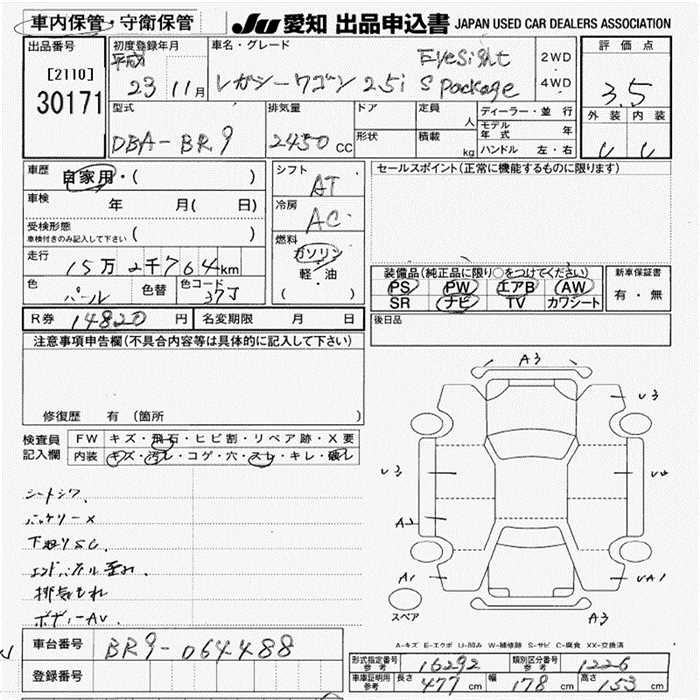 車内保管・守衛保管
JU 愛知 出品申込書 JAPAN USED CAR DEALERS ASSOCIATION
出品番号
[2110]
30171
初度登録年月
平成
23 11月
車名・グレード
レガシーワゴン 2.5i EyeSight S Package
2WD
4WD
評価点
3.5
外装 内装
型式
DBA-BR9
排気量
2450 CC
ドア
形状
定員 人
積載 kg
ディーラー・並行
モデル年式 年
ハンドル 左・右
車歴
自家用・( )
車検 年 月( 日)
受検形態
車検付きのみ記入して下さい ( )
走行
15万2千764km
色
パール
色替
色コード
37J
シフト
AT
冷房
AC
燃料
ガソリン
軽・油
( )
セールスポイント(正常に機能するものに限ります)
装備品(純正品に限り○をつけてください)
PS PW エアB AW
SR ナビ TV カワシート
新車保証書
有・無
後日品
R券 14820円
名変期限 月 日
注意事項申告欄(不具合内容等は具体的に記入して下さい)
修復歴 有(箇所 )
検査員
記入欄
FW キズ・飛石・ヒビ割・リペア跡・X要
内装 キズ・汚レ・コゲ・穴・スレ・キレ・破レ
シートシワ、
バッテリーX
下廻りSC、
排気もれ
ボディーAU、
A3
U3
U3
U4
A2
A1
UA1
A3
スペア
A-キズ E-エクボ U-凹み W-補修跡 S-サビ C-腐食 XX-交換済
車台番号
BR9-064488
登録番号
形式指定番号 参考 16292
類別区分番号 参考 1226
車庫証明用 参考 長さ 477cm 幅 178cm 高さ 153cm